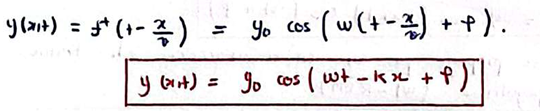 y(x,t) = f⁺(t - x/v) = y₀ cos(ω(t - x/v) + φ).
y(x,t) = y₀ cos(ωt - kx + φ)